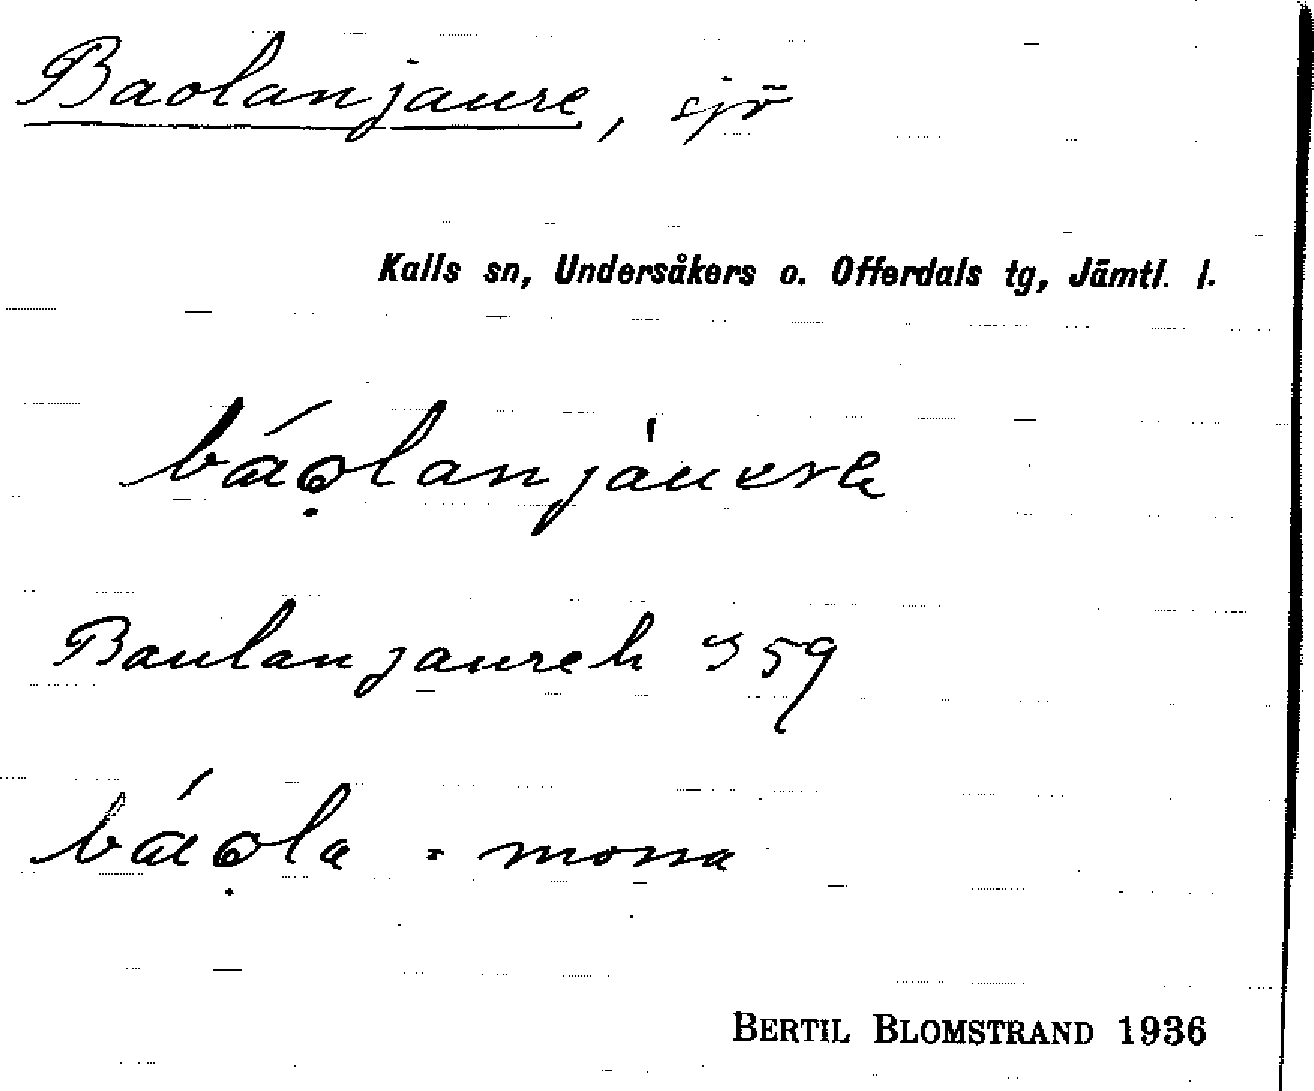 Baolanjaure, sjö
Kalls sn, Undersåkers o. Offerdals tg, Jämtl. l.
báo̩lanjáuure
Baulanjaureh S 59
báo̩la = mossa
BERTIL BLOMSTRAND 1936